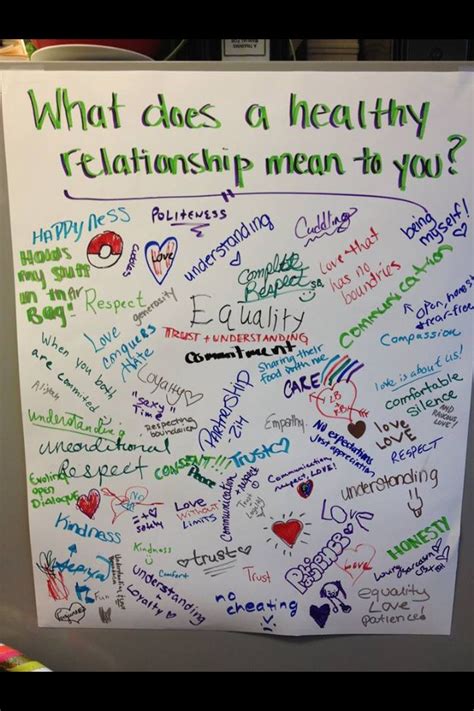 What does a healthy
relationship mean to you?
HAPPYNESS
POLITENESS
understanding
Cuddling
being
myself!
Holds
my stuff
in their
Bag!
cuddles
Love
Complete
Respect
Love that
has no
boundries
Communication
open, honest
+ fear-free
Respect
generosity
Equality
TRUST + UNDERSTANDING
Comantment
Love
conquers
Hate
Compassion
When you both
are commited
Loyalty
Sharing their
food with me
CARE
love is about us!
comfortable
silence
"sexy
Time"
Partnership
Respecting
boundaries
understanding
Empathy
No expectations
just appreciation
love
LOVE
RESPECT
unconditional
Respect
CONSENT!!
Peace
Trust
Communication
respect LOVE!
understanding
Evolving
open
Dialogue
Love
without
LIMITS
Communication
Love
HONESTY
Kindness
Kindness
trust
Trust
Comfort
understanding
Loyalty
Fun
no
cheating
Love
equality
Love
patience!